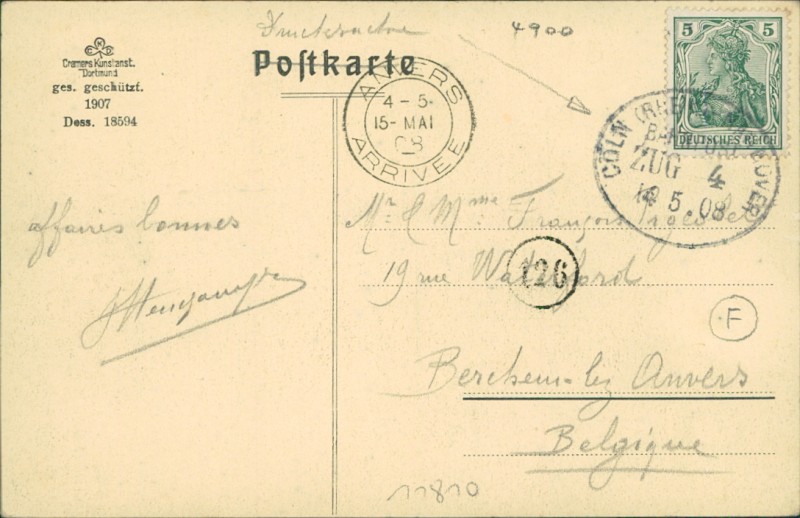 Drucksache
4900
Postkarte
Cramers Kunstanst.
Dortmund
ges. geschützt.
1907
Dess. 18594
ANVERS
4-5
15-MAI
08
ARRIVÉE
5 5
DEUTSCHES REICH
CÖLN (RHE
BAHNPOST
ZUG 4
14 5.08
affaires bonnes
Mr & Mme François
19 rue
126
F
Berchem-lez Anvers
Belgique
11810